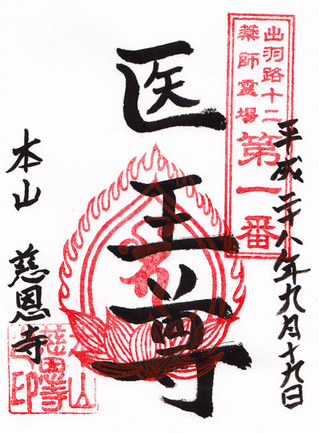 出羽路十二
薬師霊場
第一番
平成二十八年九月十九日
医王尊
本山 慈恩寺
慈恩寺山
印